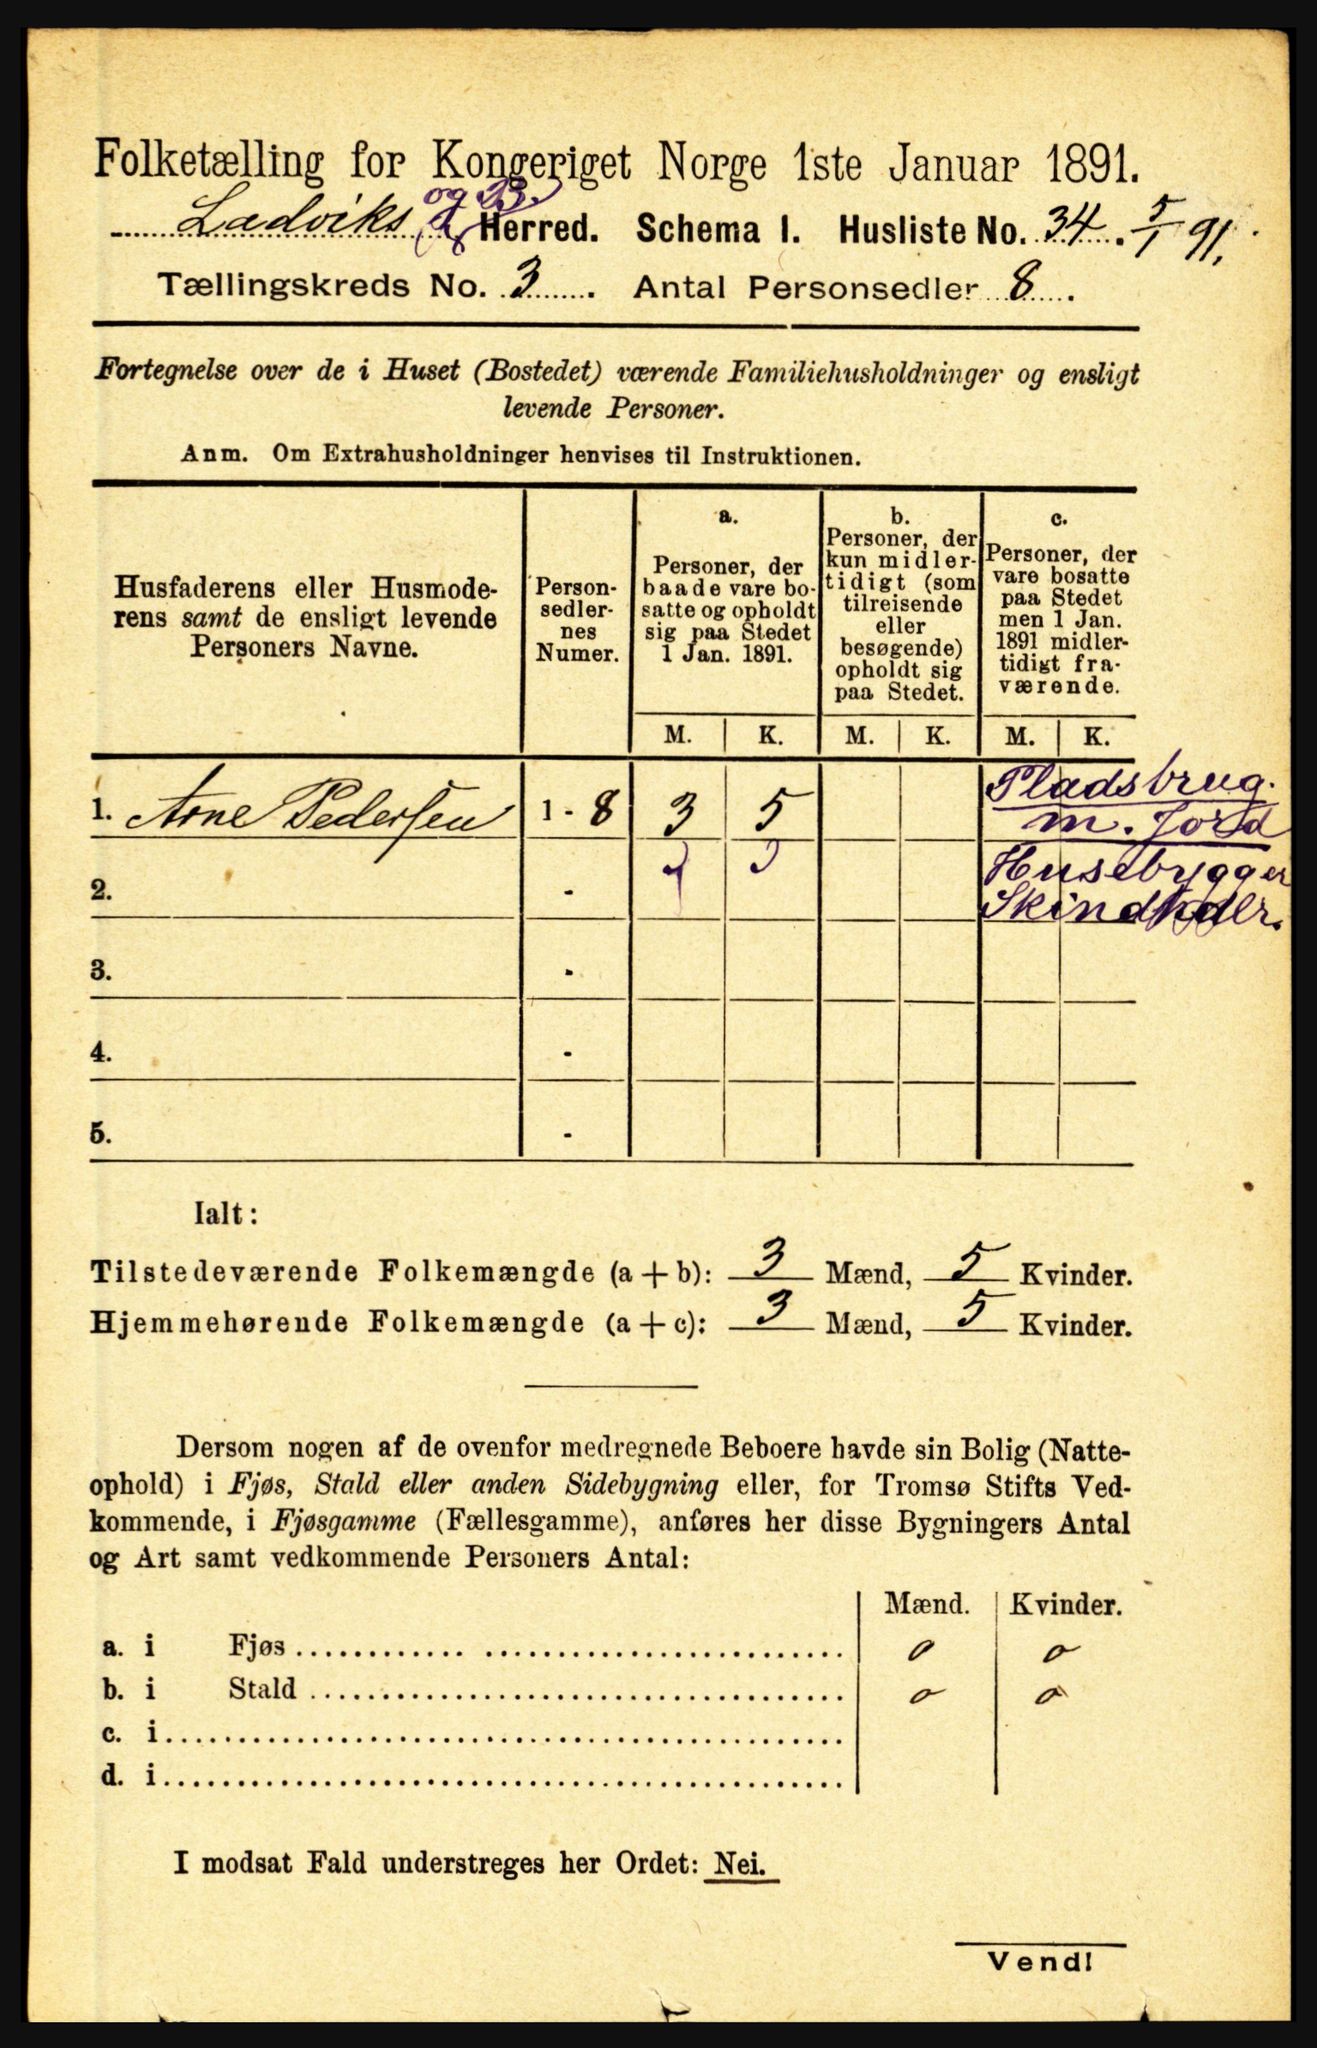 Folketælling for Kongeriget Norge 1ste Januar 1891.
og B.
Ladviks Herred. Schema I. Husliste No. 34. 5/1 91.
Tællingskreds No. 3. Antal Personsedler 8.
Fortegnelse over de i Huset (Bostedet) værende Familiehusholdninger og ensligt
levende Personer.
Anm. Om Extrahusholdninger henvises til Instruktionen.
Husfaderens eller Husmode-
rens samt de ensligt levende
Personers Navne.
Person-
sedler-
nes
Numer.
a.
Personer, der
baade vare bo-
satte og opholdt
sig paa Stedet
1 Jan. 1891.
b.
Personer, der
kun midler-
tidigt (som
tilreisende
eller
besøgende)
opholdt sig
paa Stedet.
c.
Personer, der
vare bosatte
paa Stedet
men 1 Jan.
1891 midler-
tidigt fra-
værende.
M. K. M. K. M. K.
1. Arne Pedersen 1 - 8 3 5
Pladsbrug.
m. Jord
Husebygger
2. -
3. -
4. -
5. -
Ialt:
Tilstedeværende Folkemængde (a + b): 3 Mænd, 5 Kvinder.
Hjemmehørende Folkemængde (a + c): 3 Mænd, 5 Kvinder.
Dersom nogen af de ovenfor medregnede Beboere havde sin Bolig (Natte-
ophold) i Fjøs, Stald eller anden Sidebygning eller, for Tromsø Stifts Ved-
kommende, i Fjøsgamme (Fællesgamme), anføres her disse Bygningers Antal
og Art samt vedkommende Personers Antal:
Mænd. Kvinder.
a. i Fjøs 0 0
b. i Stald 0 0
c. i
d. i
I modsat Fald understreges her Ordet: Nei.
Vend!